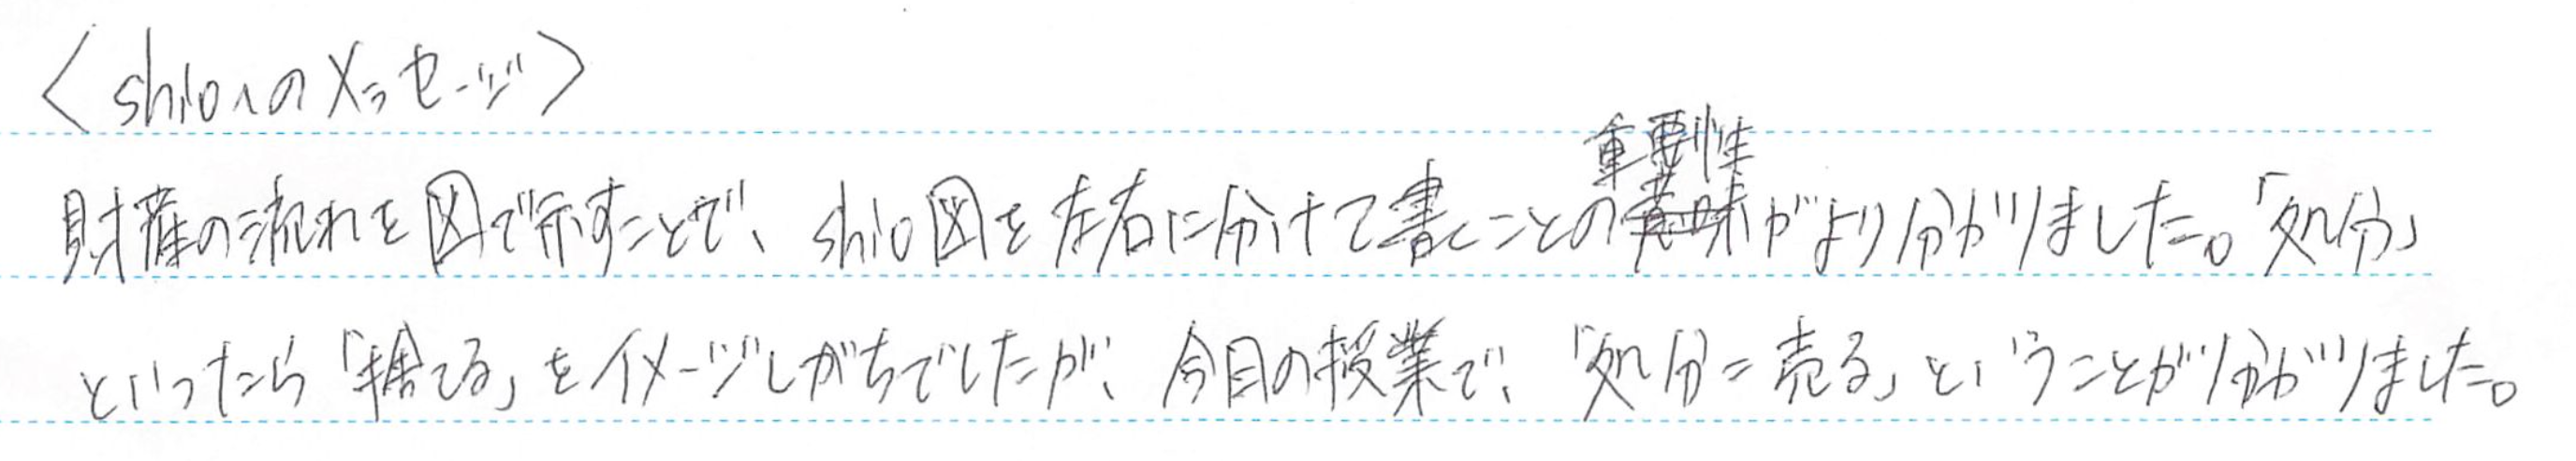 〈shioへのメッセージ〉
財産の流れを図で示すことで、shio図を左右に分けて書くことの重要性がより分かりました。「処分」
といったら「捨てる」をイメージしがちでしたが、今日の授業で、「処分=売る」ということが分かりました。